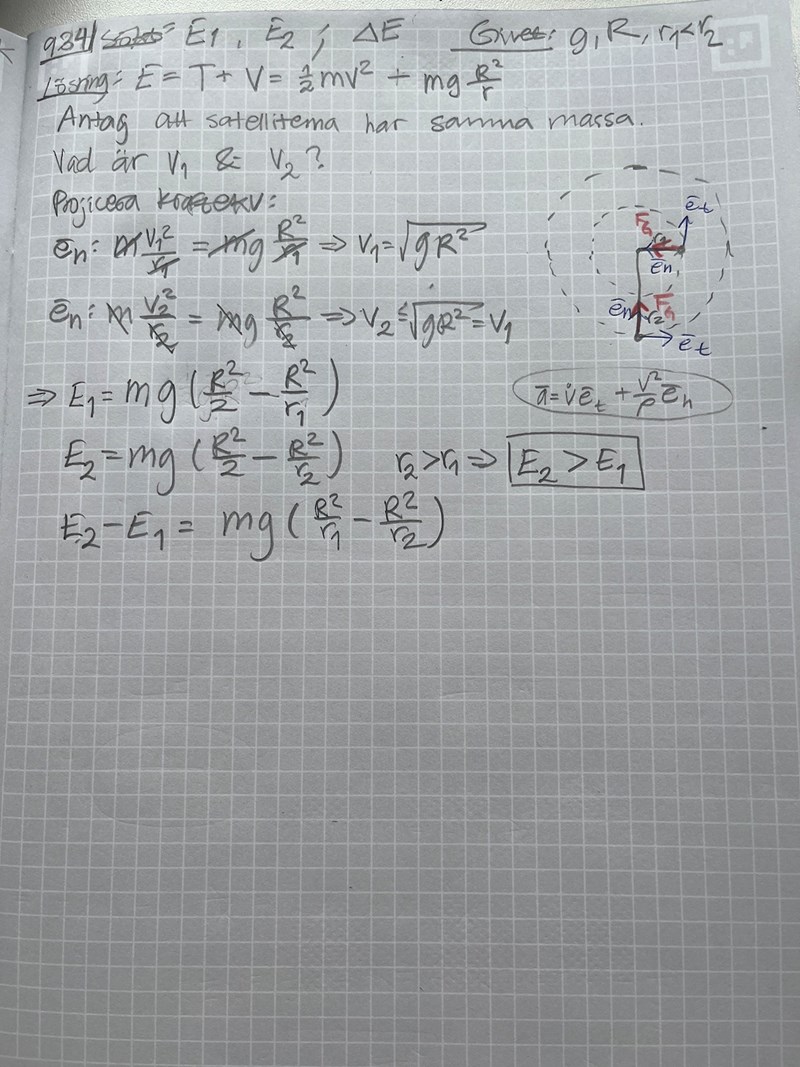 934/ Sökt: E₁, E₂ ; ΔE Givet: g, R, r₁<r₂
Lösning: E = T + V = ½mv² + mg R²/r
Antag att satelliterna har samma massa.
Vad är v₁ & v₂?
Projicera kraftekv:
ēₙ: m v₁²/r₁ = mg R²/r₁ ⇒ v₁ = √gR²
ēₙ: m v₂²/r₂ = mg R²/r₂ ⇒ v₂ = √gR² = v₁
⇒ E₁ = mg(R²/2 − R²/r₁)
E₂ = mg(R²/2 − R²/r₂) r₂>r₁ ⇒ E₂ > E₁
E₂−E₁ = mg(R²/r₁ − R²/r₂)
ēₜ
F_G
ēₙ
ēₙ F_G
r₂
ēₜ
ā = v̇ēₜ + v²/ρ ēₙ